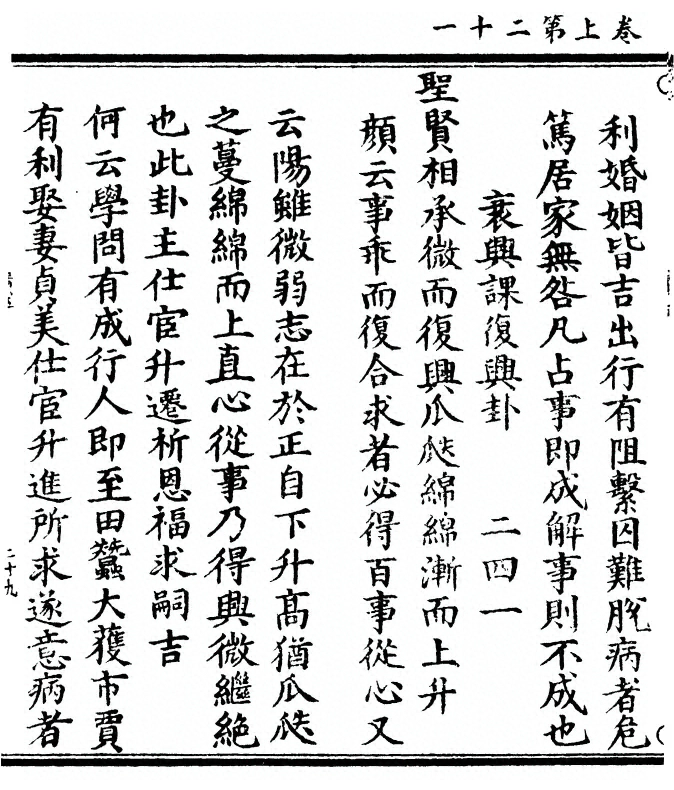 卷上第二十一
利婚姻皆吉出行有阻繫囚難脫病者危
篤居家無咎凡占事即成解事則不成也
衰興課復興卦 二四一
聖賢相承微而復興瓜瓞綿綿漸而上升
顏云事乖而復合求者必得百事從心又
云陽雖微弱志在於正自下升高猶瓜瓞
之蔓綿綿而上直心從事乃得興微繼絕
也此卦主仕宦升遷析恩福求嗣吉
何云學問有成行人即至田蠶大穫市賈
有利娶妻貞美仕宦升進所求遂意病者
二十九